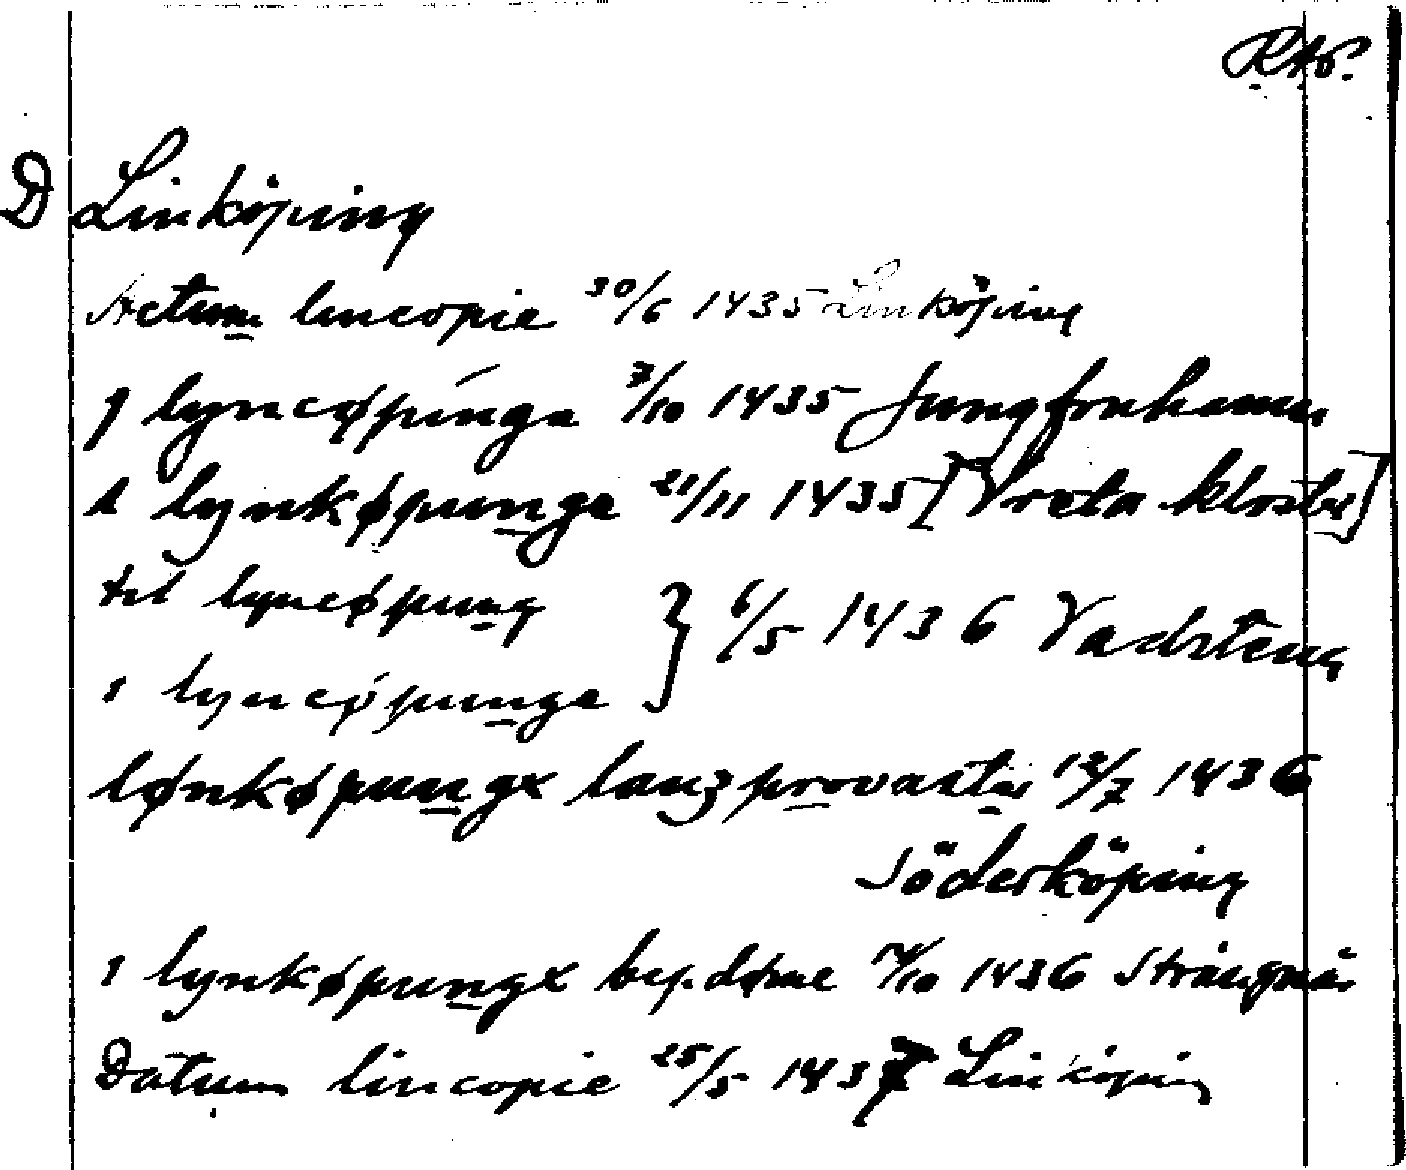 RAp.
D Linköping
Actum lincopie 30/6 1435 Linköping
j lyncøpinga 7/10 1435 Jungfruhamn
i lynkøpunge 21/11 1435 [Vreta kloster]
til lyncøpung } 6/5 1436 Vadstena
i lyncøpunge
lønkøpungx lanzprovastir 13/7 1436
Söderköping
i lynkøpungx bp.døme 14/10 1436 Strängnäs
Datum lincopie 25/5 1437 Linköping